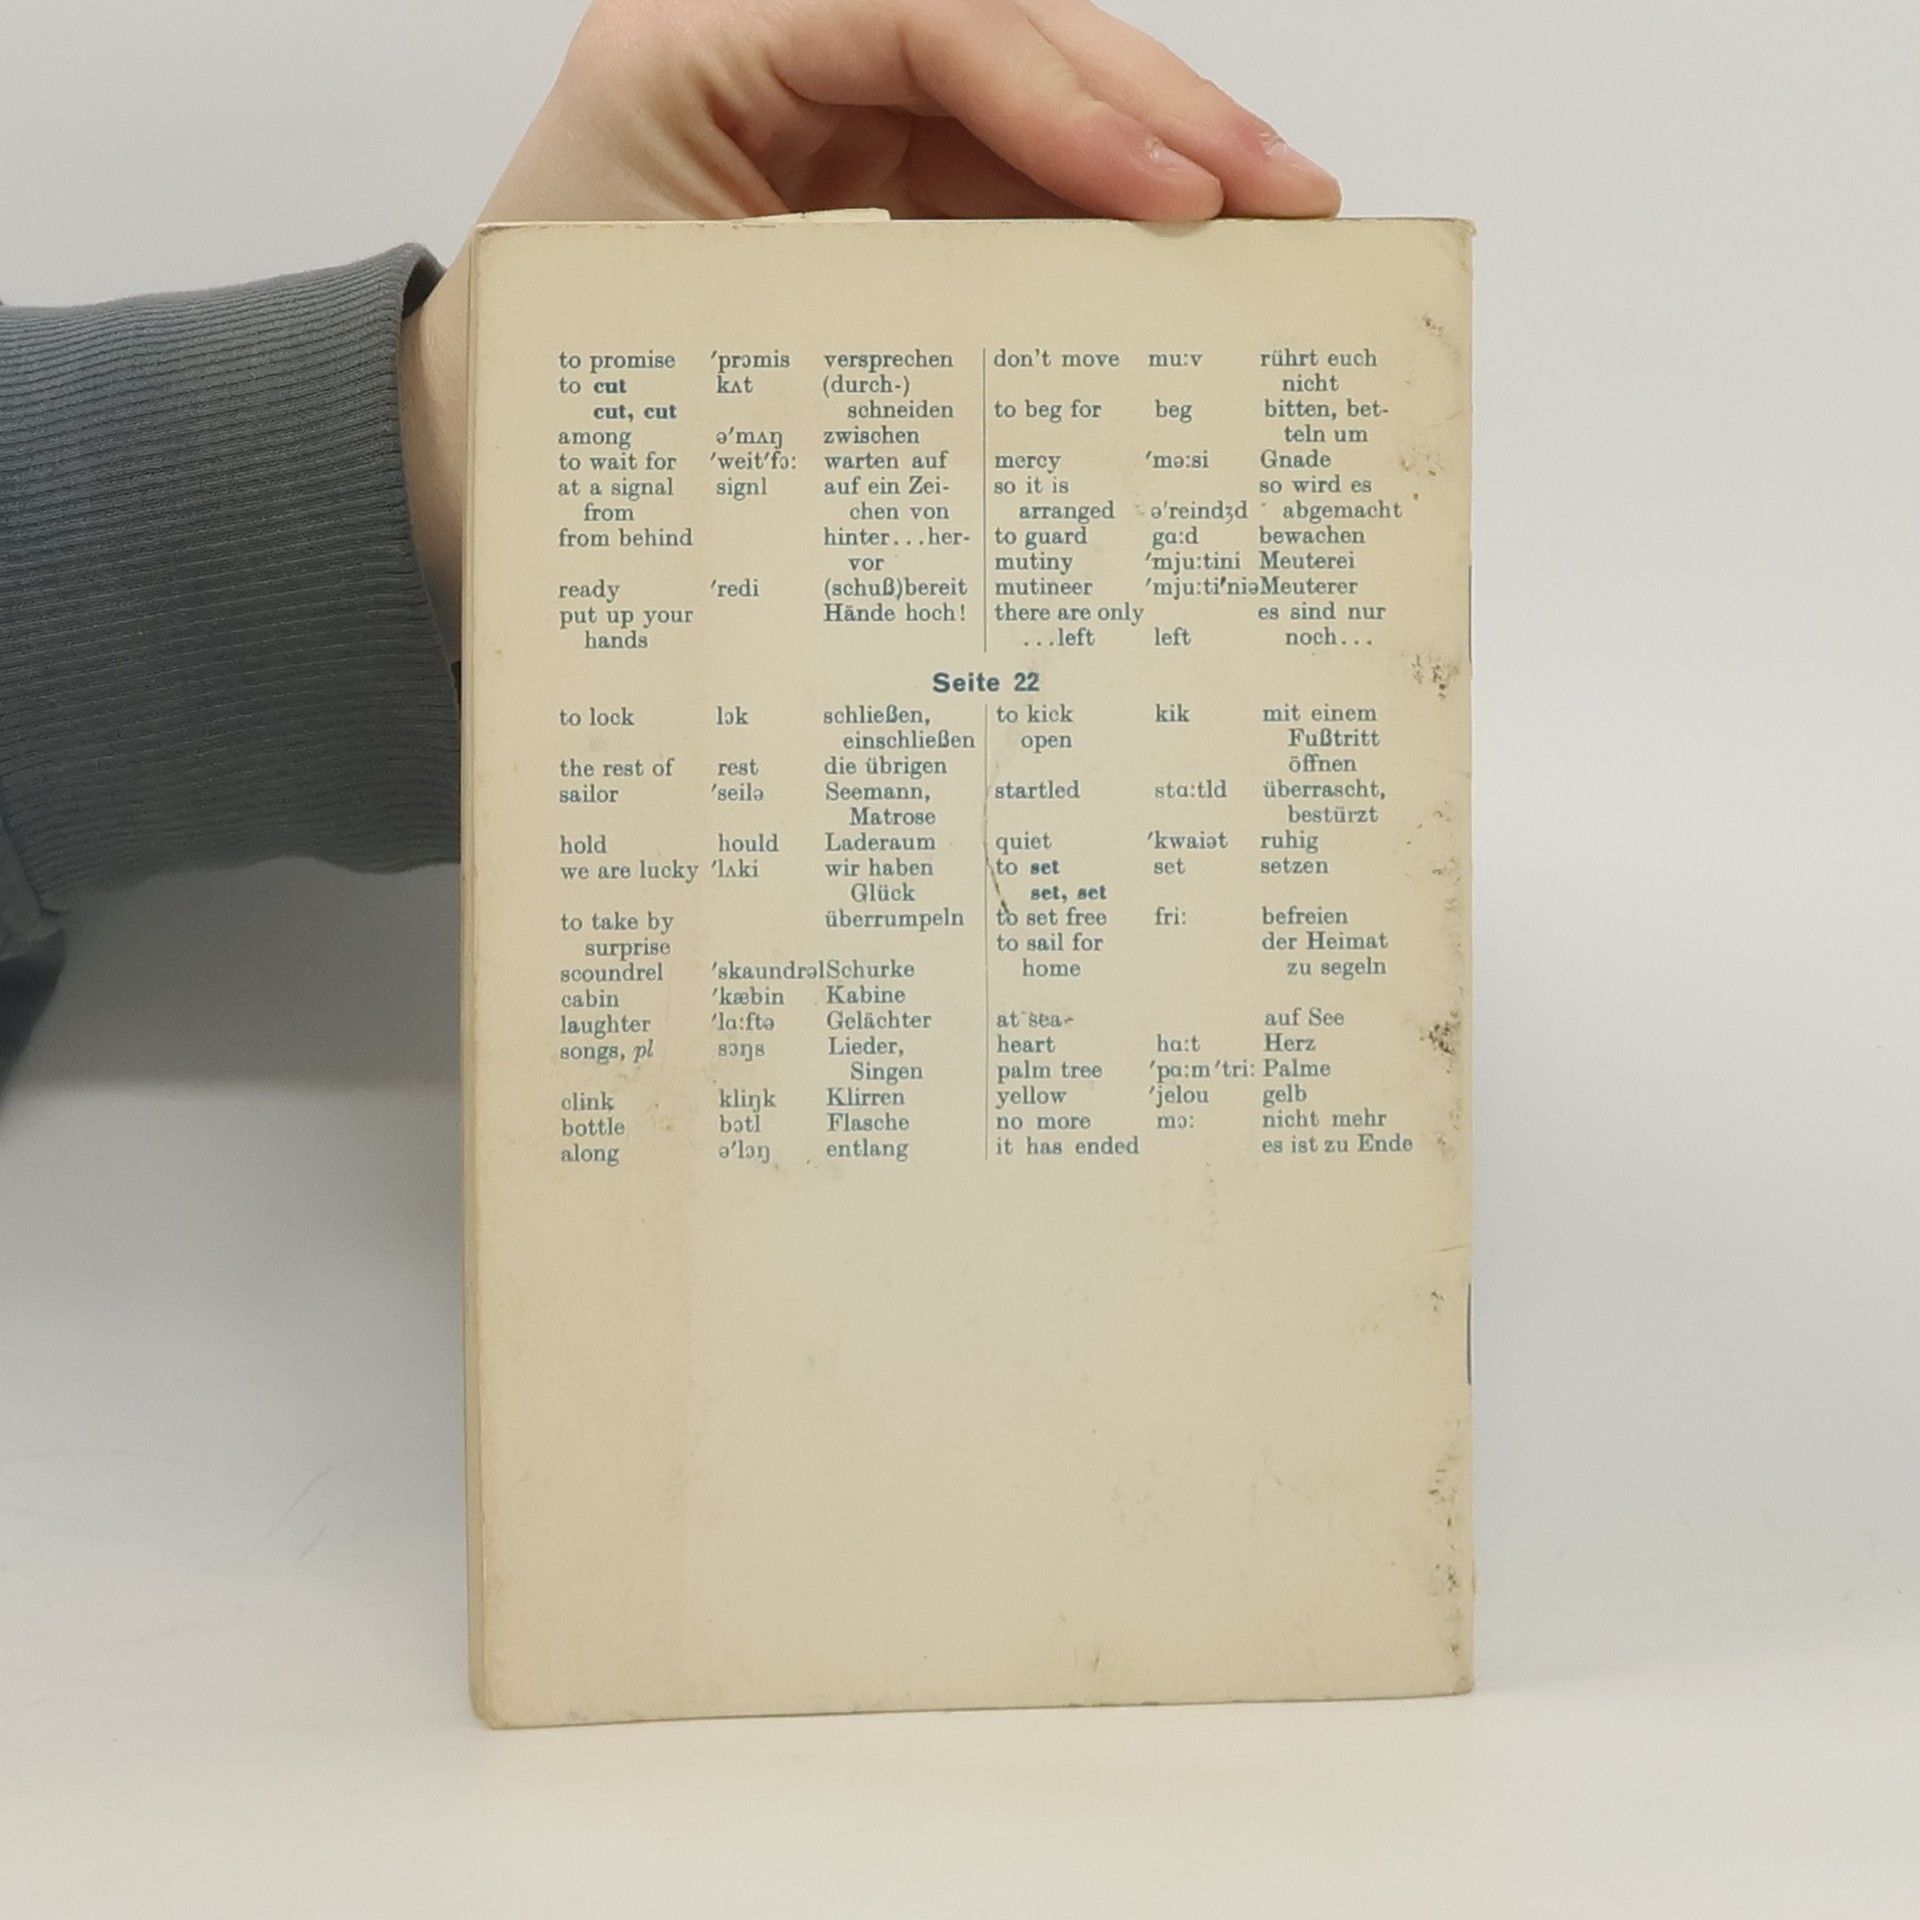 to promise ′prɔmis versprechen
to cut kʌt (durch-)
cut, cut schneiden
among ə′mʌŋ zwischen
to wait for ′weit′fɔ: warten auf
at a signal signl auf ein Zei-
from chen von
from behind hinter...her-
vor
ready ′redi (schuß)bereit
put up your Hände hoch!
hands
don't move mu:v rührt euch
nicht
to beg for beg bitten, bet-
teln um
mercy ′mə:si Gnade
so it is so wird es
arranged ə′reindʒd abgemacht
to guard gɑ:d bewachen
mutiny ′mju:tini Meuterei
mutineer ′mju:ti′niə Meuterer
there are only es sind nur
...left left noch...
Seite 22
to lock lɔk schließen,
einschließen
the rest of rest die übrigen
sailor ′seilə Seemann,
Matrose
hold hould Laderaum
we are lucky ′lʌki wir haben
Glück
to take by überrumpeln
surprise
scoundrel ′skaundrəl Schurke
cabin ′kæbin Kabine
laughter ′lɑ:ftə Gelächter
songs, pl sɔŋs Lieder,
Singen
clink kliŋk Klirren
bottle bɔtl Flasche
along ə′lɔŋ entlang
to kick kik mit einem
open Fußtritt
öffnen
startled stɑ:tld überrascht,
bestürzt
quiet ′kwaiət ruhig
to set set setzen
set, set
to set free fri: befreien
to sail for der Heimat
home zu segeln
at sea auf See
heart hɑ:t Herz
palm tree ′pɑ:m ′tri: Palme
yellow ′jelou gelb
no more mɔ: nicht mehr
it has ended es ist zu Ende